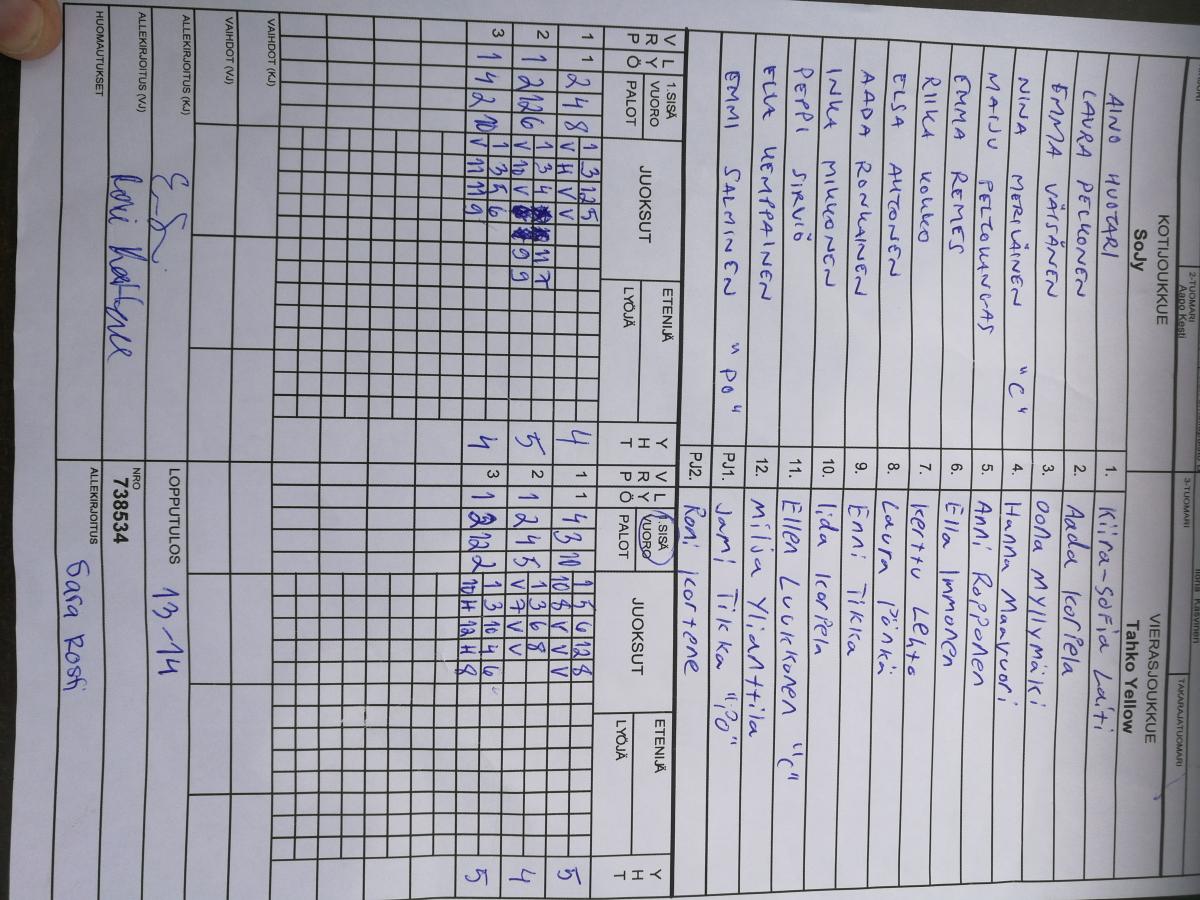 2-TUOMARI
Aapo Kesti
3-TUOMARI
TAKARAJATUOMARI
KOTIJOUKKUE
SoJy
VIERASJOUKKUE
Tahko Yellow
AINO HUOTARI 1. Kiira-Sofia Laiti
LAURA PELKONEN 2. Aada Korpela
EMMA VÄISÄNEN 3. Oona Myllymäki
NINA MERILÄINEN "C" 4. Hanna Maavuori
MAIJU PELTOKANGAS 5. Anni Rapponen
EMMA REMES 6. Ella Immonen
RIIKA KOKKO 7. Kerttu Lehto
ELSA AHTONEN 8. Laura Pönkä
AADA RONKAINEN 9. Enni Tikka
INKA MIKKONEN 10. Iida Korpela
PEPPI SIRVIÖ 11. Ellen Luukkonen "C"
ELLA KEMPPAINEN 12. Milja Ylianttila
EMMI SALMINEN "PO" PJ1. Jami Tikka "PO"
PJ2. Roni Kortene
V R P L Y Ö 1.SISÄ VUORO PALOT JUOKSUT ETENIJÄ LYÖJÄ Y H T V R P L Y Ö 1.SISÄ VUORO PALOT JUOKSUT ETENIJÄ LYÖJÄ Y H T
1 1 2 4 8 1 3 12 5 4 1 1 4 3 10 1 5 6 12 8 5
V H V V 10 8 V V V
2 1 2 12 6 1 3 4 11 7 5 2 1 2 4 5 1 3 6 8 4
V 10 V 9 9 V 7 V V
3 1 4 2 10 1 3 5 6 4 3 1 2 12 2 1 3 10 4 6 5
V 11 11 9 10 H 12 H 8
VAIHDOT (KJ)
VAIHDOT (VJ)
ALLEKIRJOITUS (KJ)
LOPPUTULOS 13-14
ALLEKIRJOITUS (VJ)
NRO
738534
HUOMAUTUKSET
ALLEKIRJOITUS
Sara Rosti